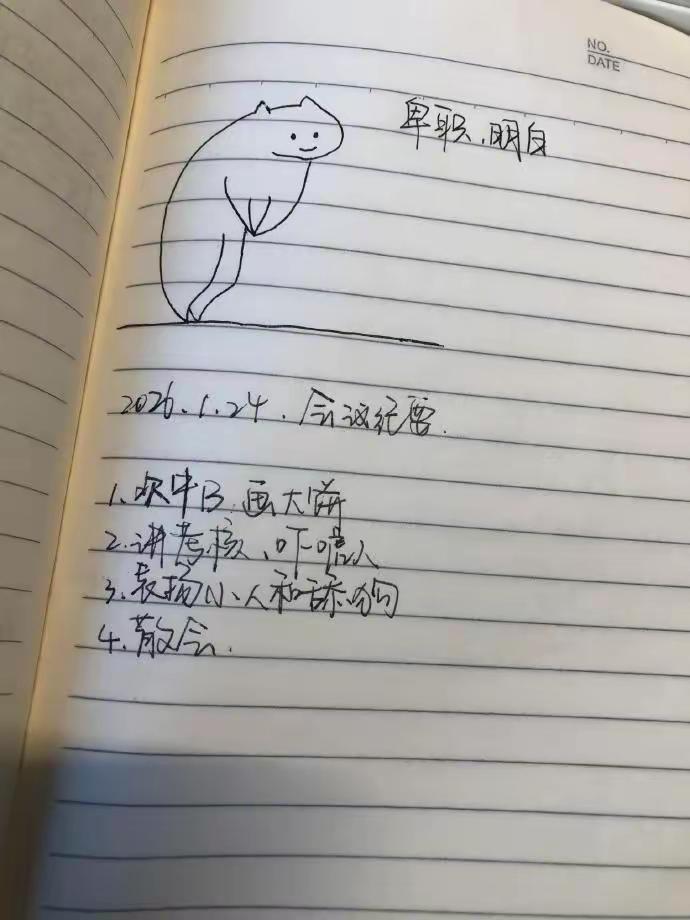 NO.
DATE
卑职、明白
2026.1.24.会议纪要.
1.吹牛B.画大饼
2.讲考核、吓唬人
3.表扬小人和舔狗
4.散会.